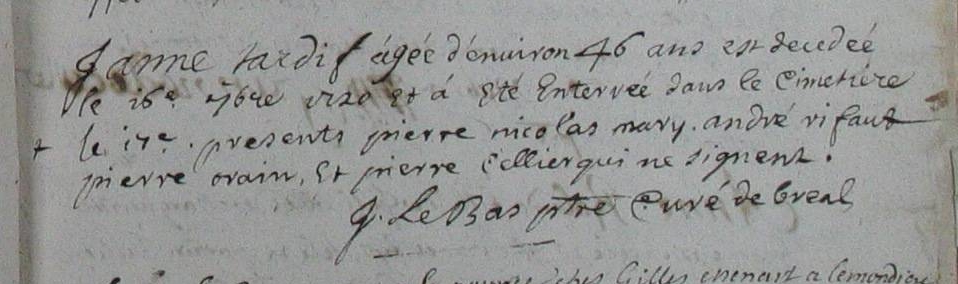 Janne tardif âgée d'environ 46 ans est decedeé
le 16e. 7bre 1720 Et á Eté Enterreé dans le Cimetiére
le 17e. presents pierre nicolas mary. andré rifaut
pierre orain, Et pierre Cellier qui ne signent.
J. Le Bas ptre Curé de breal
chés Gilles